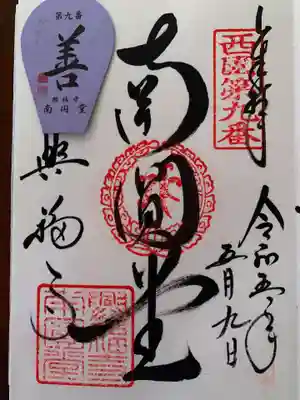 西國第九番
令和五年
五月九日
南圓堂
興福寺
第九番
善
興福寺
南円堂